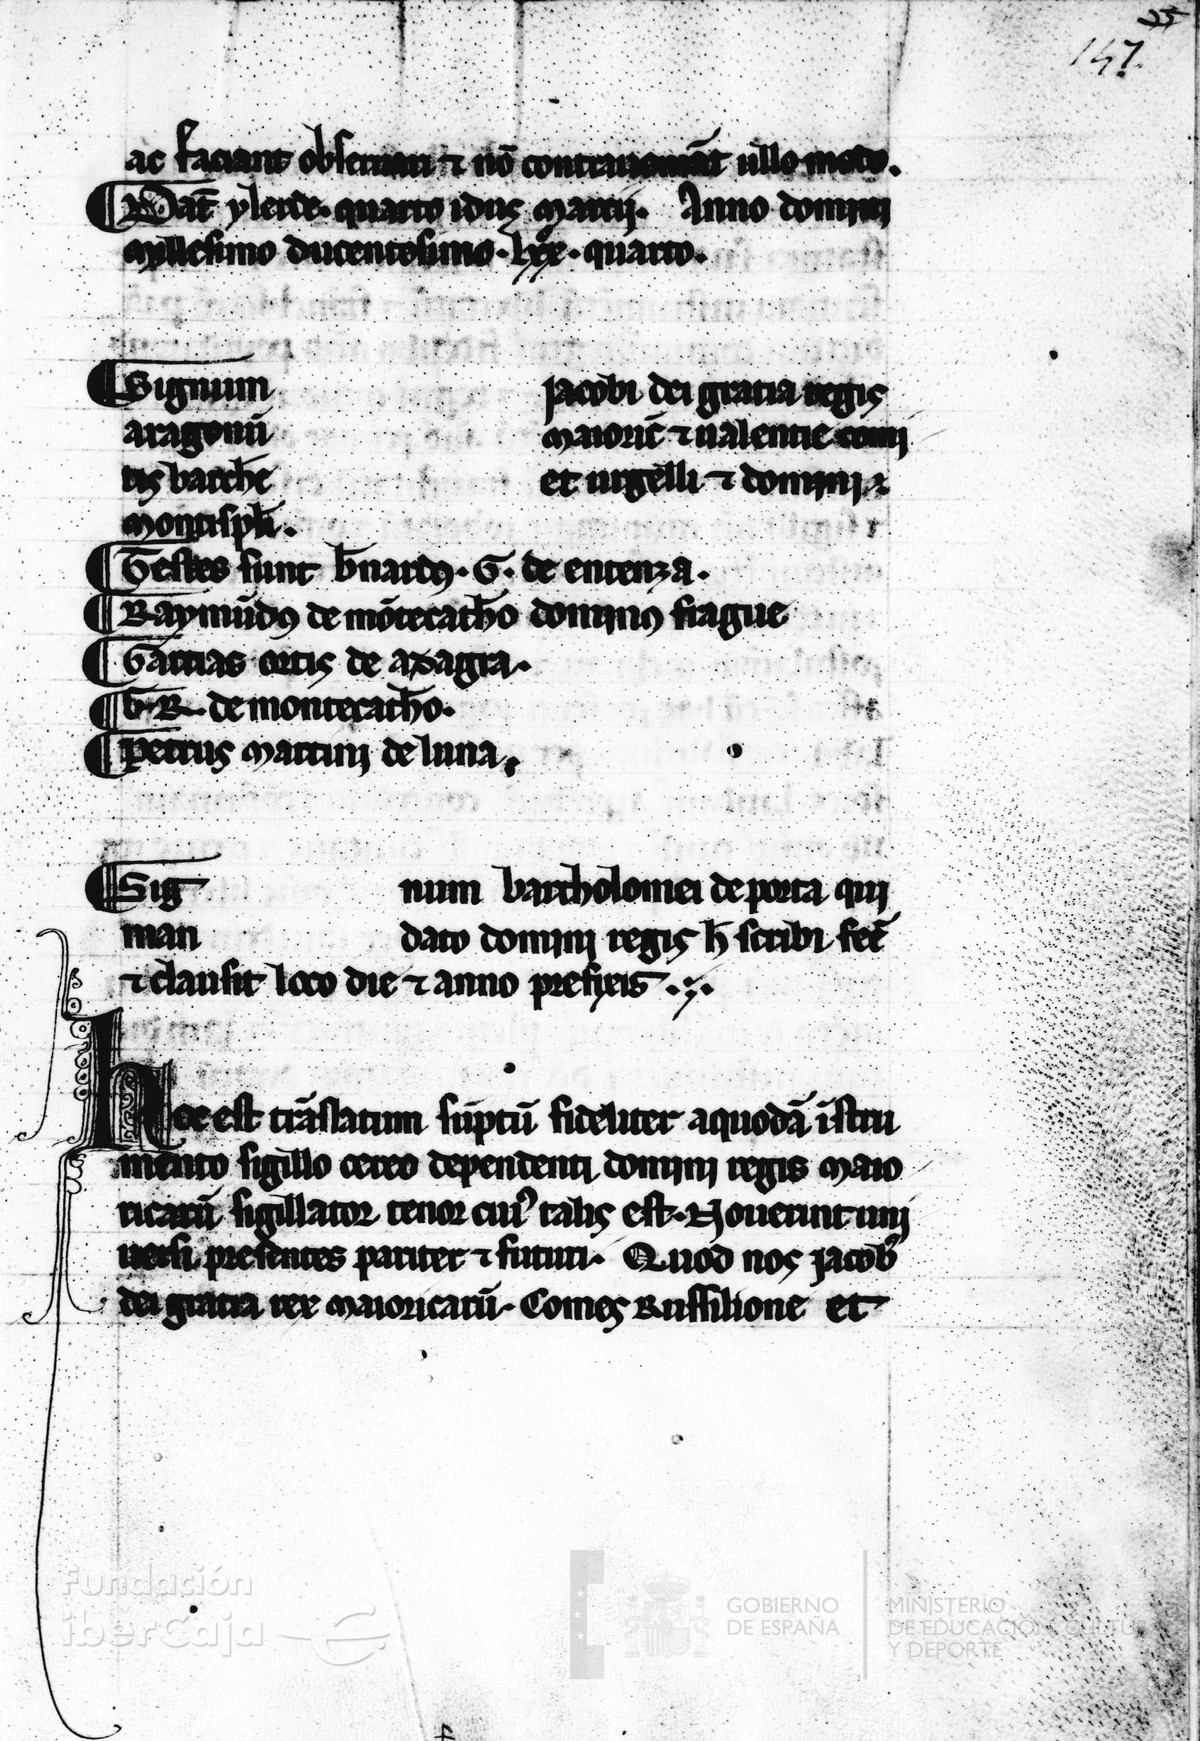 55
147.
ac faciant obseruari ⁊ nō contraueniāt ullo modo.
¶ Dat̄ ylerde. quarto idus marcij. Anno domini
Millesimo ducentesimo. lxx. quarto.
¶ Signum Jacobi dei gratia regis
aragonū maioric̄ ⁊ ualentie comi
tis barch̄e et urgelli ⁊ domini
montispłi.
¶ Testes sunt b̄nardꝰ. G. de entenza.
¶ Raymūdꝰ de mōtecath̄o dominꝰ frague
¶ Garcias ortis de axagra.
¶ G. R. de montecath̄o.
¶ Petrus martini de luna.
¶ Sig num bartholomei de porta qui
man dato domini regis h̄ scribi fec̄
⁊ clausit loco die ⁊ anno prefixis.
hoc est trāslatum sūptū fideliter a quodā īstru
mento sigillo cereo dependenti domini regis maio
ricarū sigillator tenor cuiꝰ talis est. Nouerint uni
uersi presentes pariter ⁊ futuri. Quod nos jacobꝰ
dei gratia rex maioricarū. Comes Russilione et
Fundación
iberCaja
GOBIERNO
DE ESPAÑA
MINISTERIO
DE EDUCACIÓN, CULTURA
Y DEPORTE